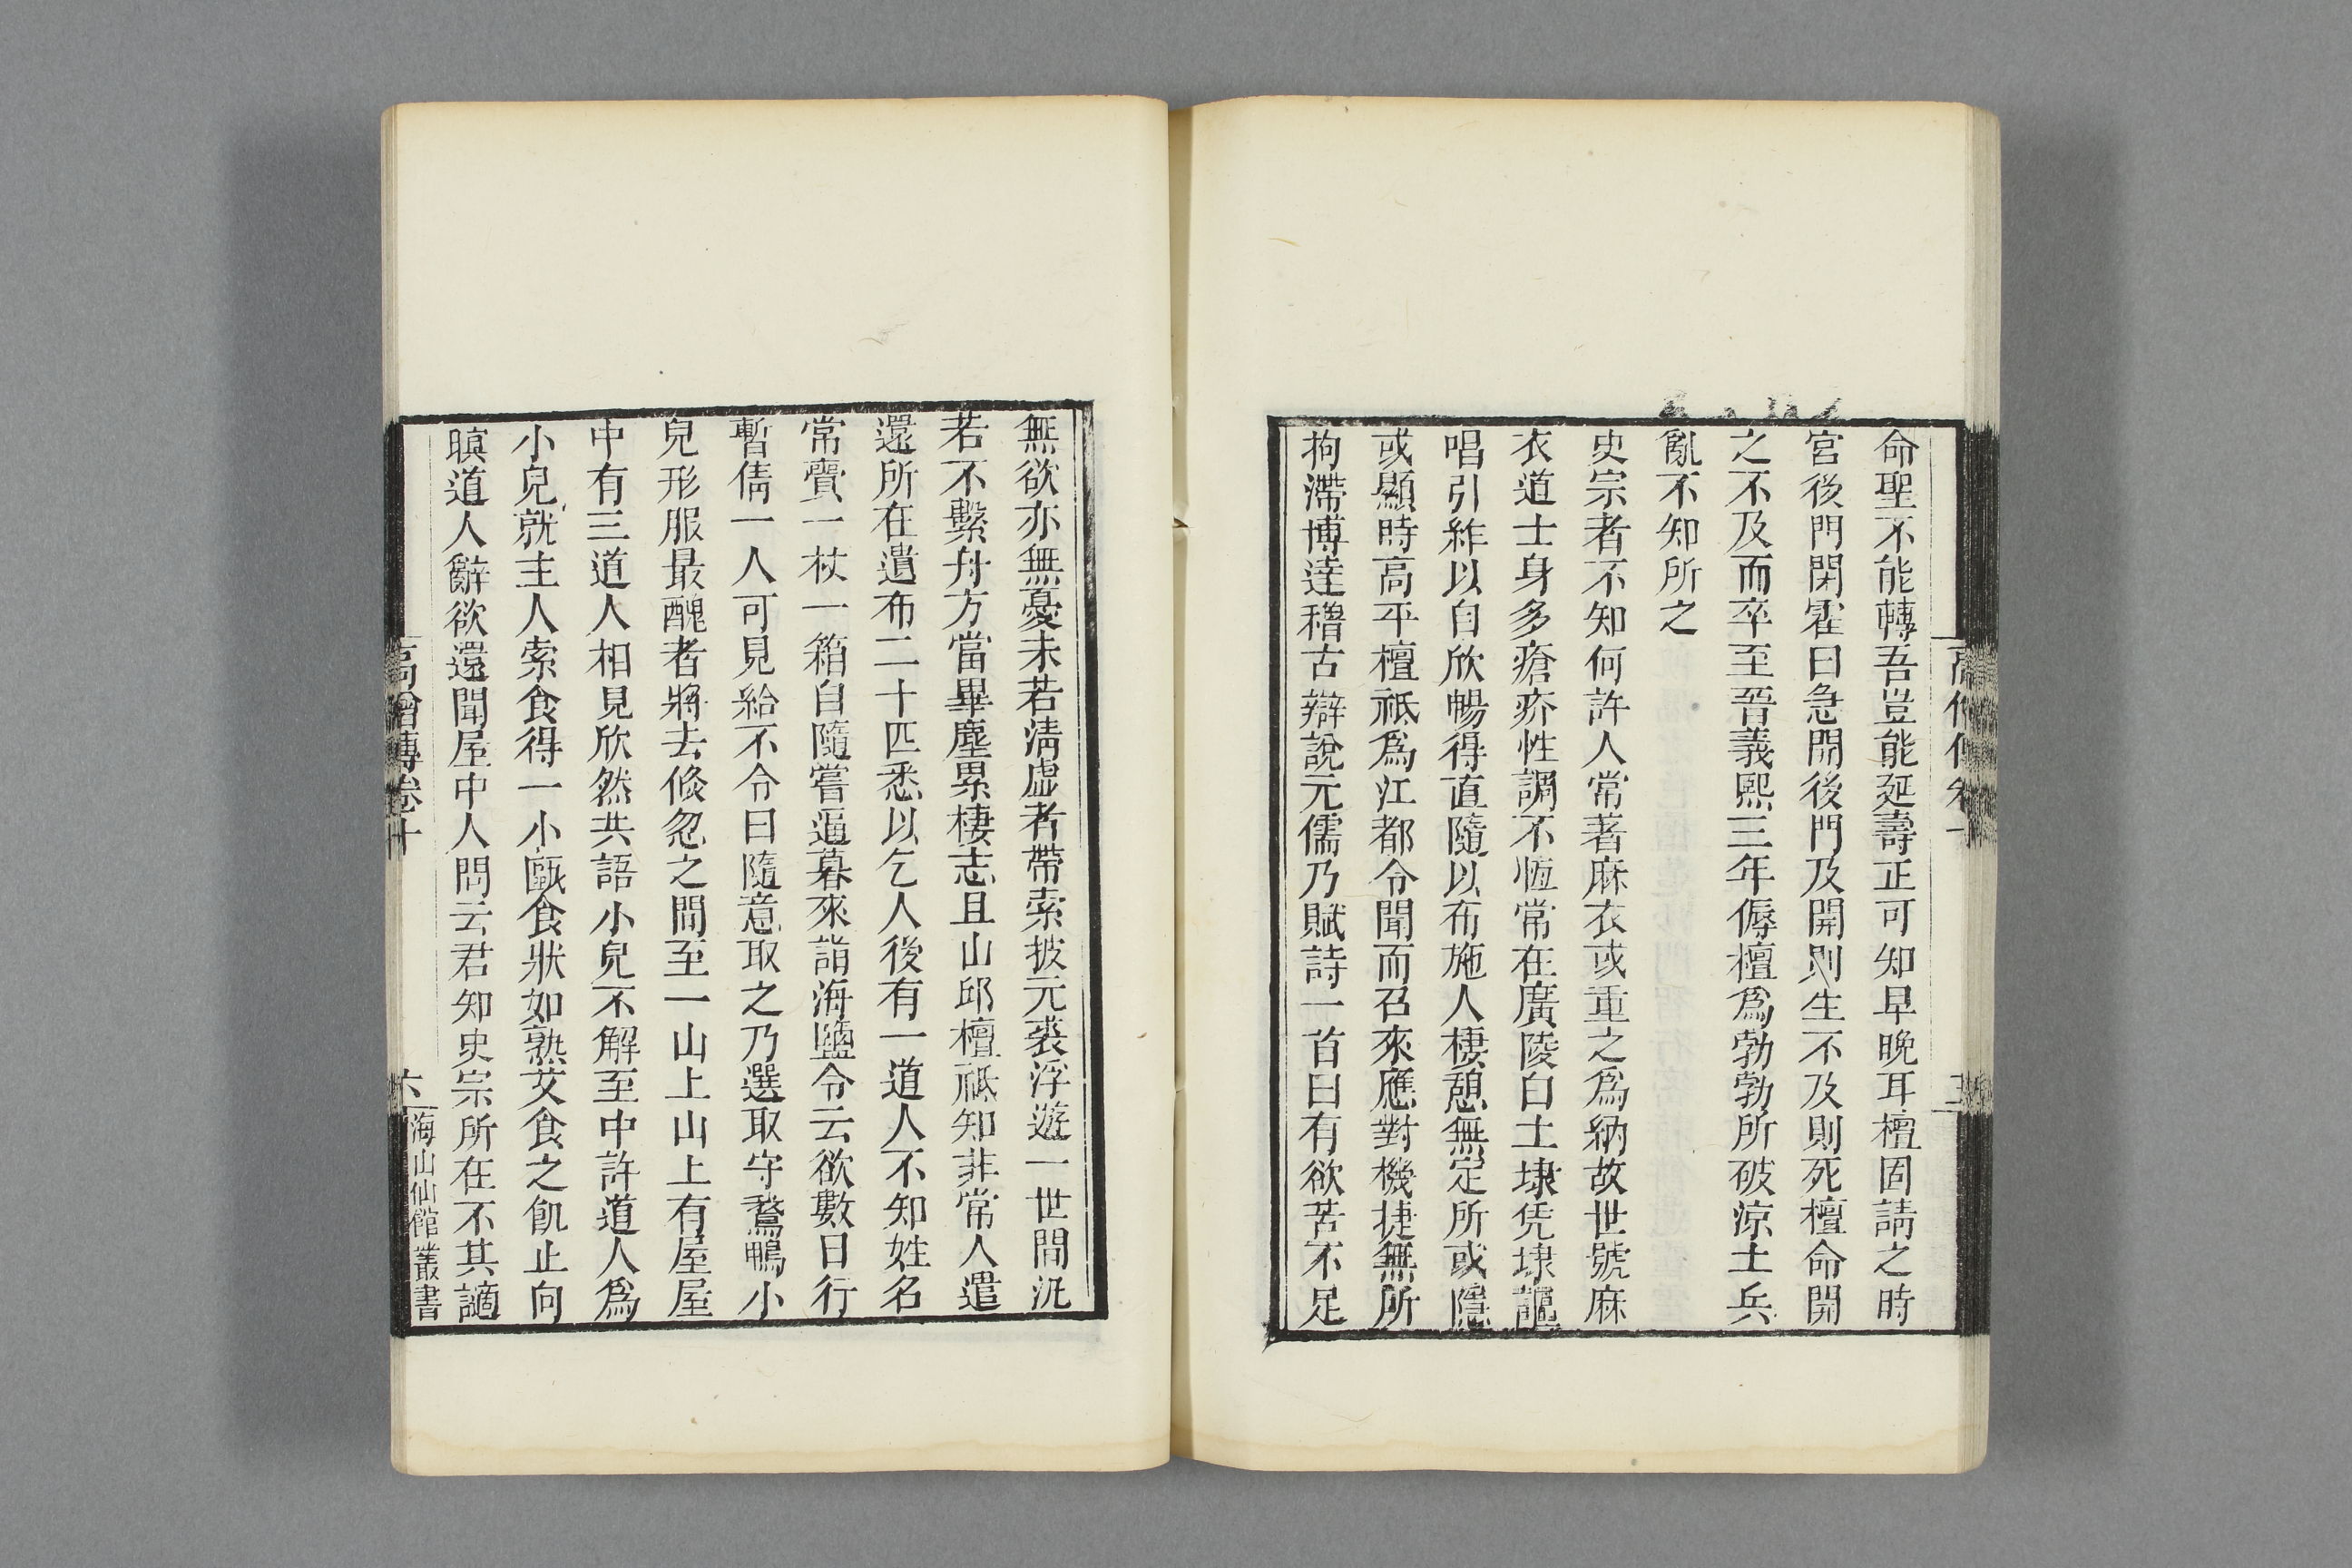 命聖不能轉吾豈能延壽正可知早晚耳檀固請之時
宮後門閉霍曰急開後門及開則生不及則死檀命開
之不及而卒至晉義熙三年傉檀爲勃勃所破涼土兵
亂不知所之
史宗者不知何許人常著麻衣或重之爲納故世號麻
衣道士身多瘡疥性調不恆常在廣陵白土埭凭埭謳
唱引䋏以自欣暢得直隨以布施人棲憩無定所或隱
或顯時高平檀祗爲江都令聞而召來應對機捷無所
拘滯博達稽古辯說元儒乃賦詩一首曰有欲苦不足
無欲亦無憂未若淸虛者帶索披元裘浮遊一世間汎
若不繫舟方當畢塵累棲志且山邱檀祗知非常人遣
還所在遺布二十匹悉以乞人後有一道人不知姓名
常賷一杖一箱自隨嘗逼暮來詣海鹽令云欲數日行
暫倩一人可見給不令曰隨意取之乃選取守鵞鴨小
兒形服最醜者將去倐忽之間至一山上山上有屋屋
中有三道人相見欣然共語小兒不解至中許道人爲
小兒就主人索食得一小甌食狀如熟艾食之飢止向
瞋道人辭欲還聞屋中人問云君知史宗所在不其謫
高僧傳卷十
六
海山仙館叢書